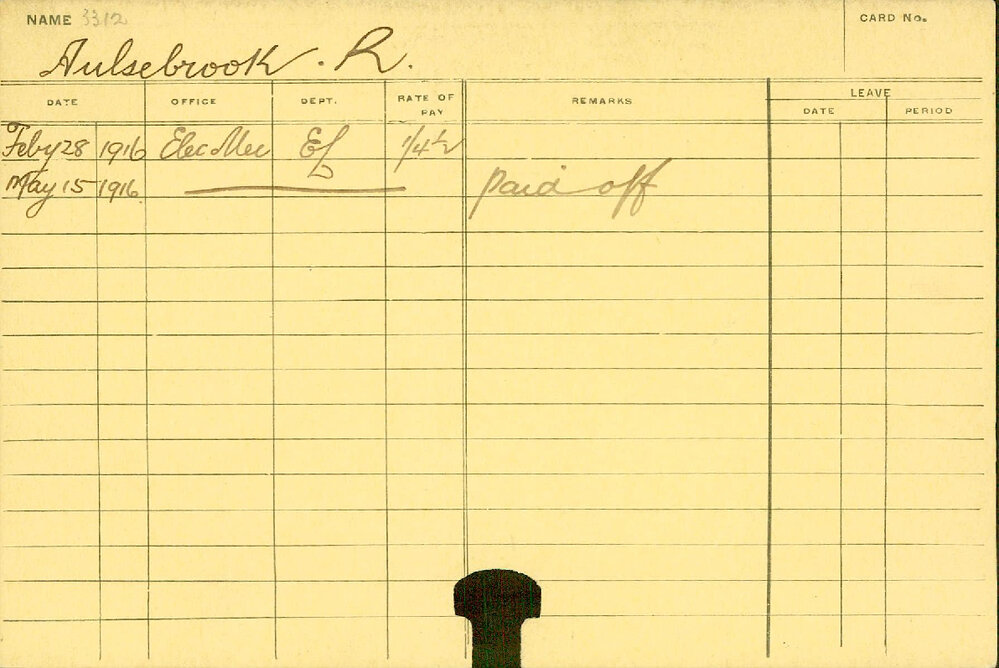 NAME 3312 CARD No.
Aulsebrook. R.
LEAVE
DATE OFFICE DEPT. RATE OF PAY REMARKS DATE PERIOD
Feby 28 1916 Elec Mec EL 1/4½
May 15 1916 Paid off